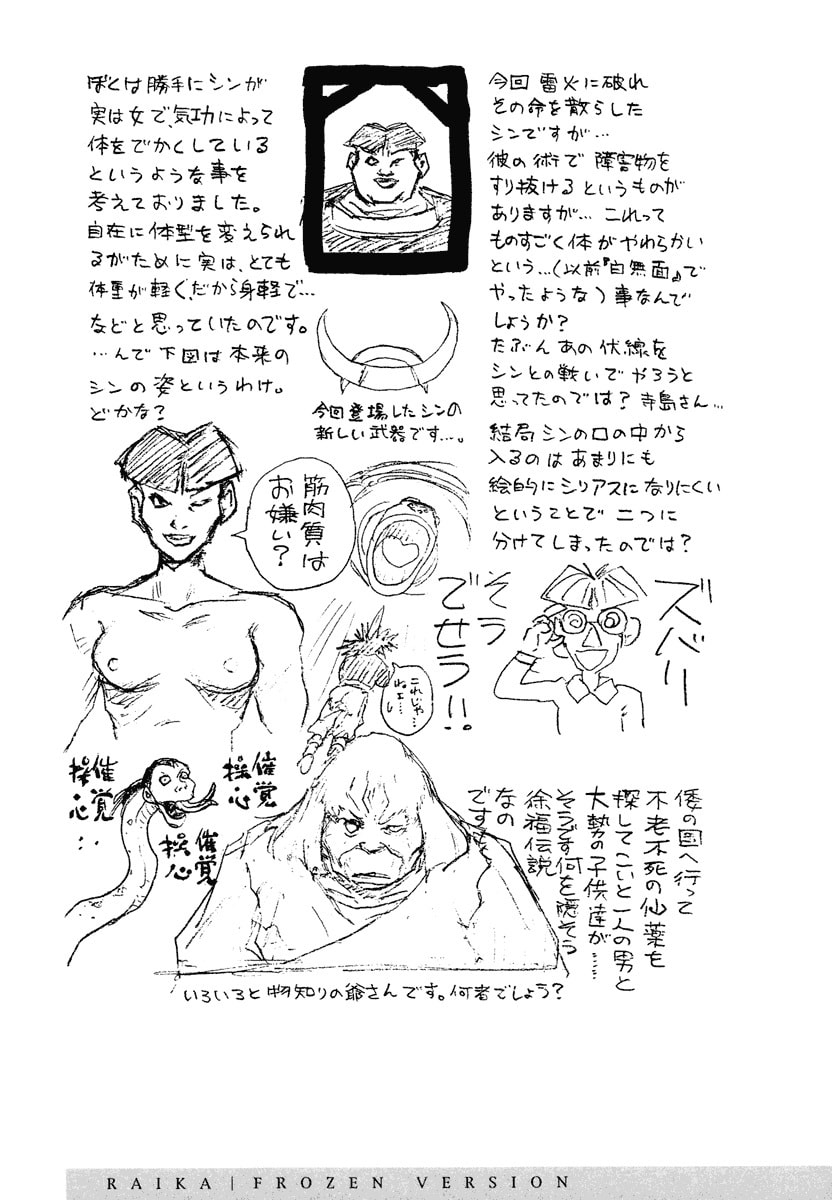 今回 雷火に破れ
その命を散らした
シンですが…
彼の術で障害物を
すり抜けるというものが
ありますが… これって
ものすごく体がやわらかい
という…(以前『白無面』で
やったような)事なんで
しょうか？
たぶん あの伏線を
シンとの戦いでやろうと
思ってたのでは？寺島さん…
結局シンの口の中から
入るのはあまりにも
絵的にシリアスになりにくい
ということで二つに
分けてしまったのでは？
ズバリ
そう
でせう!!
ぼくは勝手にシンが
実は女で、気功によって
体をでかくしている
というような事を
考えておりました。
自在に体型を変えられ
るがために実は、とても
体重が軽く、だから身軽で…
などと思っていたのです。
…んで下図は本来の
シンの姿というわけ。
どかな？
今回登場したシンの
新しい武器です…。
筋肉質は
お嫌い？
これじゃ…
ねェ…し
催覚
操心
催覚
操心‥
催覚
操心
倭の国へ行って
不老不死の仙薬を
探してこいと一人の男と
大勢の子供達が……
そうです何を隠そう
徐福伝説
なの
です
いろいろと物知りの爺さんです。何者でしょう？
RAIKA | FROZEN VERSION